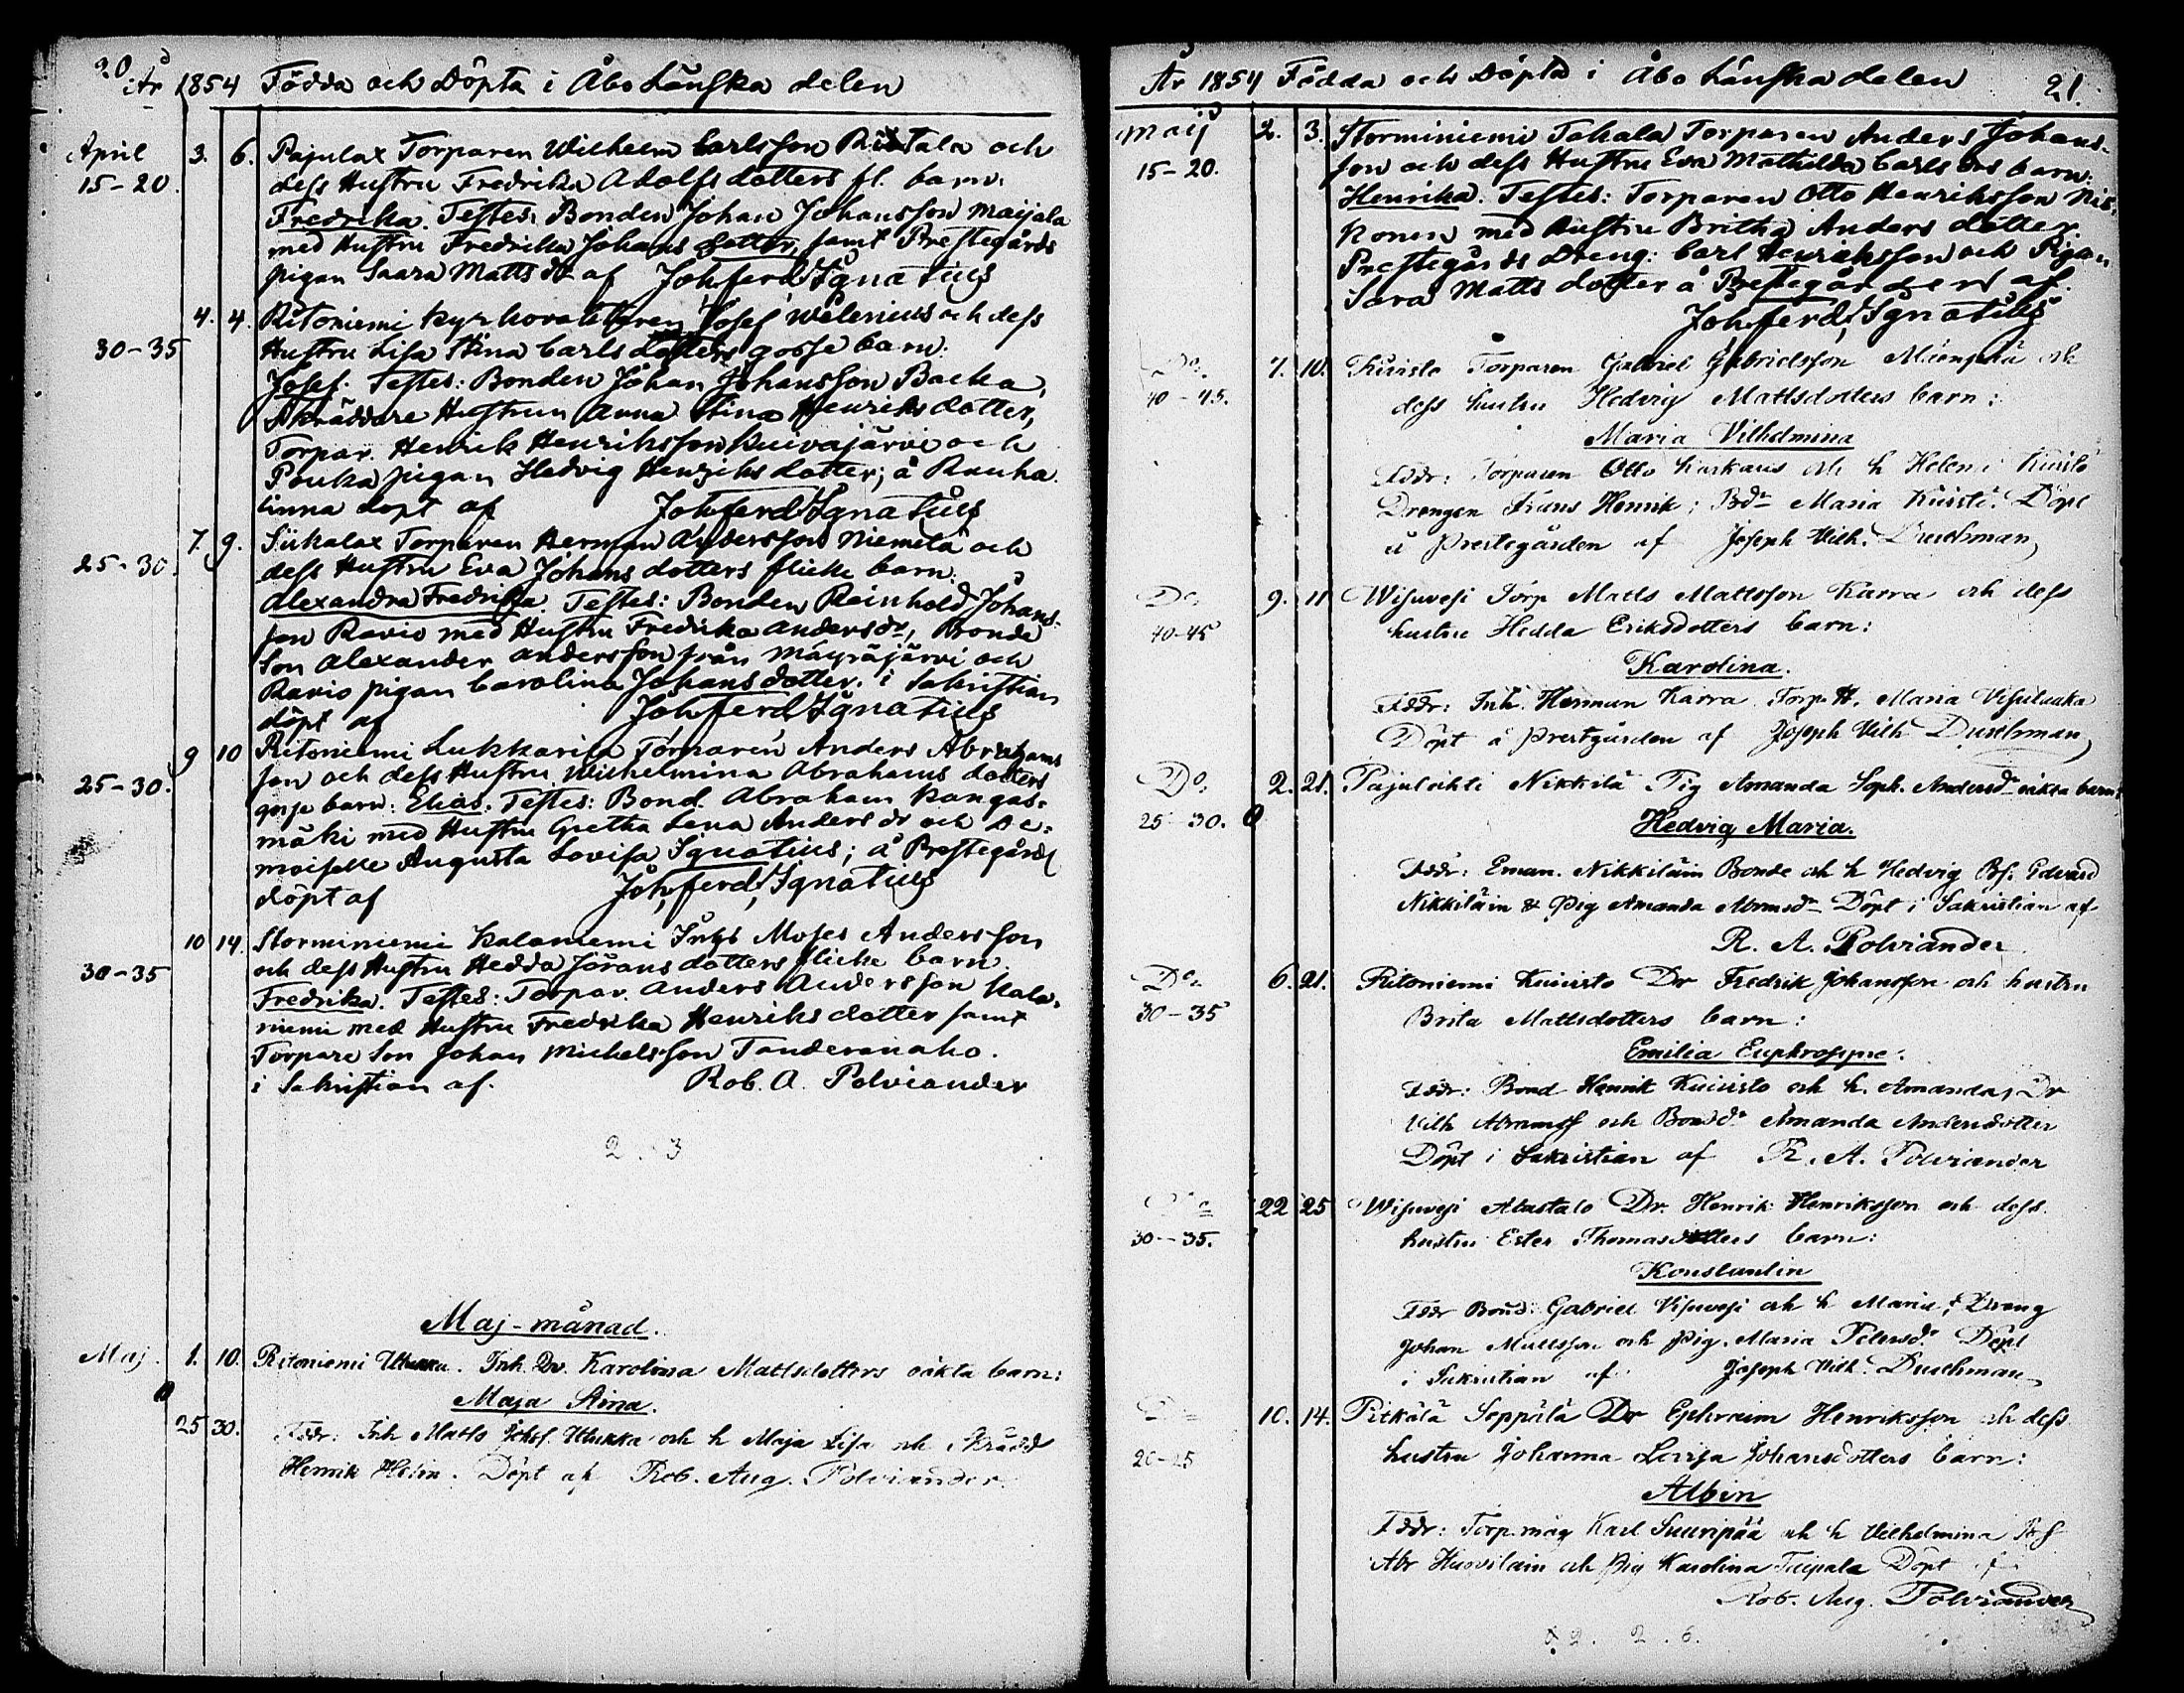 20. År 1854 Födda och Döpta i Åbo Länska delen
April 3. 6. Pajulax Torparen Wilhelm Carlsson och
15-20. dess Hustru Fredrika Adolfsdotters fl. barn:
Fredrika. Testes: Bonden Johan Johansson Maijala
med Hustru Fredrika Johans dotter, samt Prestegårds
pigan Saara Matts dr af Joh. ferd. Ignatius
4. 4. Ritoniemi Josef Welenius och dess
30-35 Hustru Lisa Stina Carls dotters gosse barn:
Josef. Testes: Bonden Johan Johansson Backa,
Skräddare Hustrun Anna Stina Henriks dotter,
Torpar. Henrik Henriksson Kuivajärvi och
Pouka pigan Hedvig Henriks dotter; å Rauha
linna döpt af Joh. ferd. Ignatius
7. 9. Siikalax Torparen Herman Andersson Niemelä och
25-30. dess Hustru Eva Johans dotters flicke barn:
Alexandra Fredrika. Testes: Bonden Reinhold Johans-
son Ravio med Hustru Fredrika Anders dr, Bonde
Son Alexander Andersson från Mäyräjärvi och
Ravio pigan Carolina Johans dotter. i Sakristian
döpt af Joh. ferd. Ignatius
9 10 Ritoniemi Lukkarila Torparen Anders Abrahams
25-30. son och dess Hustru Wilhelmina Abrahams dotters
gosse barn: Elias. Testes: Bond. Abraham Kangas-
mäki med Hustru Gretha Lena Anders dr och De-
moiselle Augusta Lovisa Ignatius; å Prestegårds
döpt af Joh. ferd. Ignatius
10 14. Storminiemi Kalaniemi Inhs Moses Andersson
30-35 och dess Hustru Hedda Jörans dotters flicke barn
Fredrika. Testes: Torpar. Anders Andersson Kala-
niemi med Hustru Fredrika Henriks dotter samt
Torpare Son Johan Michelsson Tanderanaho.
i Sakristian af. Rob. A. Polviander
2 . 3
Maj-månad.
Maj. 1. 10. Ritoniemi Uttukka. Inh. Dr. Karolina Mattsdotters oäkta barn:
Maja Stina.
25 30. Fddr: Inh Matts Johss. Uttukka och h Maja Lisa och Skrädd
Henrik Helin. Döpt af Rob. Aug. Polviander.
År 1854 Födda och Döpta i Åbo Länska delen 21.
Maij 2. 3. Storminiemi Tahala Torparen Anders Johans-
15-20. son och dess Hustru Eva Mathilda Carls drs barn:
Henrika. Testes: Torparen Otto Henriksson Nis-
konen med Hustru Britha Anders dotter.
Prestegårds Dreng: Carl Henriksson och Pigan
Sara Matts dotter å Prestegården af.
Joh. ferd. Ignatius
Do. 7. 10. Kuisto Torparen Gabriel Gabrielsson och
40-45. dess hustru Hedvig Mattsdotters barn:
Maria Vilhelmina
Fddr: Torparen Otto Kaskaus och h Helena Kuisto
Drengen Frans Henrik; Bdr Maria Kuisto. Döpt
å Prestegården af Joseph Vilh. Duselman
Do 9. 11 Wisuvesi Torp Matts Mattsson Karra och dess
40-45 hustru Hedda Eriksdotters barn:
Karolina.
Fddr: Inh. Herman Karra. Torp. H. Maria
Döpt å Prestgården af Joseph Vilh Duselman
Do. 2. 21. Pajulahti Nikkilä Pig Amanda Soph. Andersdr oäkta barn:
25-30. Hedvig Maria.
Fddr: Eman. Nikkiläin Bonde och h Hedvig Bs. Edvard
Nikkiläin & Pig Amanda Abrmsdr Döpt i Sakristian af
R. A. Polviander
Do 6. 21. Ritoniemi Kuiristo Dr Fredrik Johansson och hustru
30-35 Brita Mattsdotters barn:
Emilia Euphrosyne.
Fddr: Bond Henrik Kuiristo och h. Amanda, Dr
Vilh Abramss och Bondr Amanda Andersdotter
Döpt i Sakristian af R. A. Polviander
Do 22 25 Wisuvesi Alastalo Dr. Henrik Henriksson och dess
30-35. hustru Ester Thomasdotters barn:
Konstantin
Fddr Bond: Gabriel Visuvesi och h Maria, Dreng
Johan Mattsson och Pig. Maria Petersdr Döpt
i Sakristian af Joseph Vilh. Duselman
Do 10. 14. Pitkälä Seppälä Dr Ephraim Henriksson och dess
20-25 hustru Johanna Lovisa Johansdotters barn:
Albin
Fddr: Torp.måg Karl Suuripää och h Vilhelmina Bs
Abr Huovilain och Pig Karolina Teipala Döpt af
Rob. Aug. Polviander
2. 2. 6.